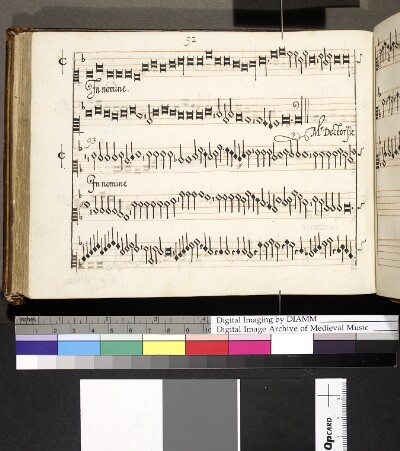 52
In nomine.
Mr Doctor
53
In nomine
inches 1 2 3 4
Digital Imaging by DIAMM
Digital Image Archive of Medieval Music
QPCARD